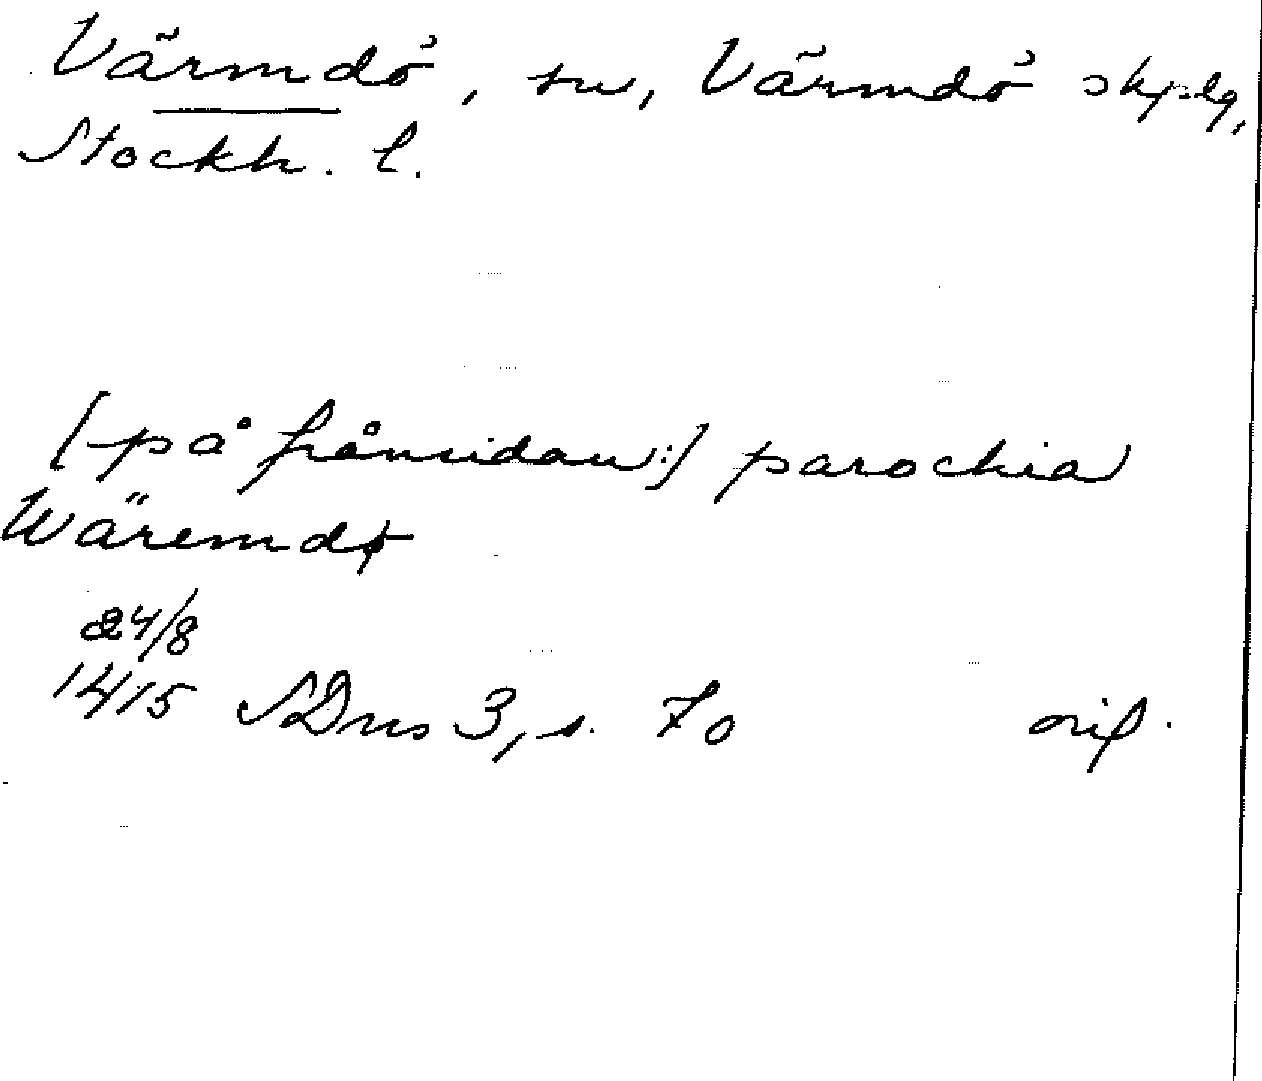 Värmdö, sn, Värmdö skplg,
Stockh. l.
[på frånsidan:] parochia
Wäremdø
24/8
1415 SDns 3, s. 70 orig.